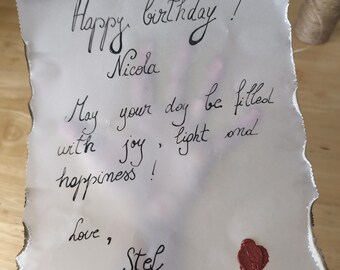 Happy birthday !
Nicola
May your day be filled
with joy, light and
happiness !
Love,
Stel